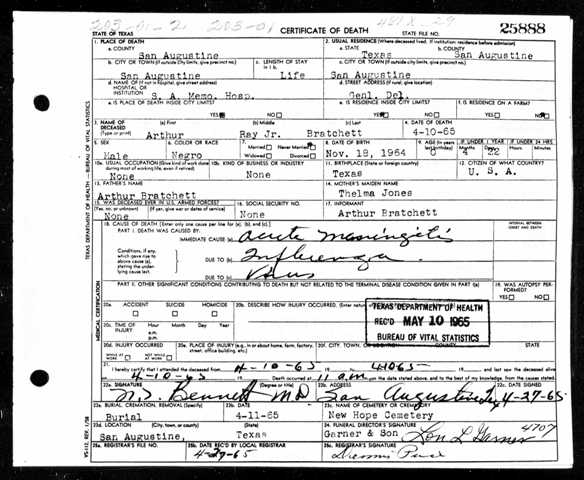 203-01-2 203-01
STATE OF TEXAS CERTIFICATE OF DEATH STATE FILE NO. 25888
1. PLACE OF DEATH 2. USUAL RESIDENCE (Where deceased lived. If institution: residence before admission)
a. COUNTY a. STATE b. COUNTY
San Augustine Texas San Augustine
b. CITY OR TOWN (If outside city limits, give precinct no.) c. LENGTH OF STAY in 1 b. c. CITY OR TOWN (If outside city limits, give precinct no.)
San Augustine Life San Augustine
d. NAME OF (If not in hospital, give street address) HOSPITAL OR INSTITUTION d. STREET ADDRESS (If rural, give location)
S. A. Memo. Hosp. Genl. Del.
e. IS PLACE OF DEATH INSIDE CITY LIMITS? e. IS RESIDENCE INSIDE CITY LIMITS? f. IS RESIDENCE ON A FARM?
YES NO YES NO YES NO
3. NAME OF DECEASED (Type or print) (a) First (b) Middle (c) Last 4. DATE OF DEATH
Arthur Ray Jr. Bratchett 4-10-65
5. SEX 6. COLOR OR RACE 7. Married Never Married Widowed Divorced 8. DATE OF BIRTH 9. AGE IF UNDER 1 YEAR IF UNDER 24 HRS.
Male Negro Nov. 18, 1964 4 22
10a. USUAL OCCUPATION (Give kind of work done during most of working life, even if retired) 10b. KIND OF BUSINESS OR INDUSTRY 11. BIRTHPLACE (State or foreign country) 12. CITIZEN OF WHAT COUNTRY?
None None Texas U. S. A.
13. FATHER'S NAME 14. MOTHER'S MAIDEN NAME
Arthur Bratchett Thelma Jones
15. WAS DECEASED EVER IN U.S. ARMED FORCES? (Yes, no, or unknown) (If yes, give war or dates of service) 16. SOCIAL SECURITY NO. 17. INFORMANT
None None Arthur Bratchett
18. CAUSE OF DEATH (Enter only one cause per line for (a), (b), and (c).) INTERVAL BETWEEN ONSET AND DEATH
PART I. DEATH WAS CAUSED BY:
IMMEDIATE CAUSE (a) Acute Meningitis
Conditions, if any, which gave rise to above cause (a), stating the underlying cause last.
DUE TO (b) Influenza
DUE TO (c) Virus
PART II. OTHER SIGNIFICANT CONDITIONS CONTRIBUTING TO DEATH BUT NOT RELATED TO THE TERMINAL DISEASE CONDITION GIVEN IN PART I (a) 19. WAS AUTOPSY PERFORMED?
YES NO
20a. ACCIDENT SUICIDE HOMICIDE 20b. DESCRIBE HOW INJURY OCCURRED.
TEXAS DEPARTMENT OF HEALTH
REC'D MAY 10 1965
BUREAU OF VITAL STATISTICS
20c. TIME OF INJURY Hour Month Day Year
a.m.
p.m.
20d. INJURY OCCURRED 20e. PLACE OF INJURY (e.g. in or about home, farm, factory, street, office building, etc.) 20f. CITY, TOWN, STATE
WHILE AT WORK NOT WHILE AT WORK
21. I hereby certify that I attended the deceased from 4-10-65 41065 and last saw the deceased alive
4-10-65 Death occurred at 11 a.m. on the date stated above, and to the best of my knowledge, from the causes stated.
22a. SIGNATURE (Degree or title) 22b. ADDRESS 22c. DATE SIGNED
Bennett MD San Augustine Tex 4-27-65
23a. BURIAL, CREMATION, REMOVAL (Specify) 23b. DATE 23c. NAME OF CEMETERY OR CREMATORY
Burial 4-11-65 New Hope Cemetery
23d. LOCATION (City, town, or county) (State) 24. FUNERAL DIRECTOR'S SIGNATURE
San Augustine, Texas Garner & Son Lon L Garner 4707
25a. REGISTRAR'S FILE NO. 25b. DATE REC'D BY LOCAL REGISTRAR 25c. REGISTRAR'S SIGNATURE
4-27-65
TEXAS DEPARTMENT OF HEALTH — BUREAU OF VITAL STATISTICS
MEDICAL CERTIFICATION
VS-112, REV. 1/58